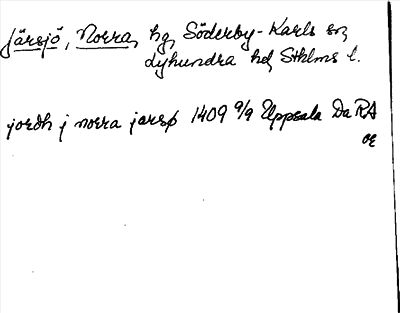 Järsjö, Norra, hg, Söderby-Karls sn,
Lyhundra hd, Sthlms l.
jordh j norra jarsø 1409 9/9 Uppsala Da RA
or